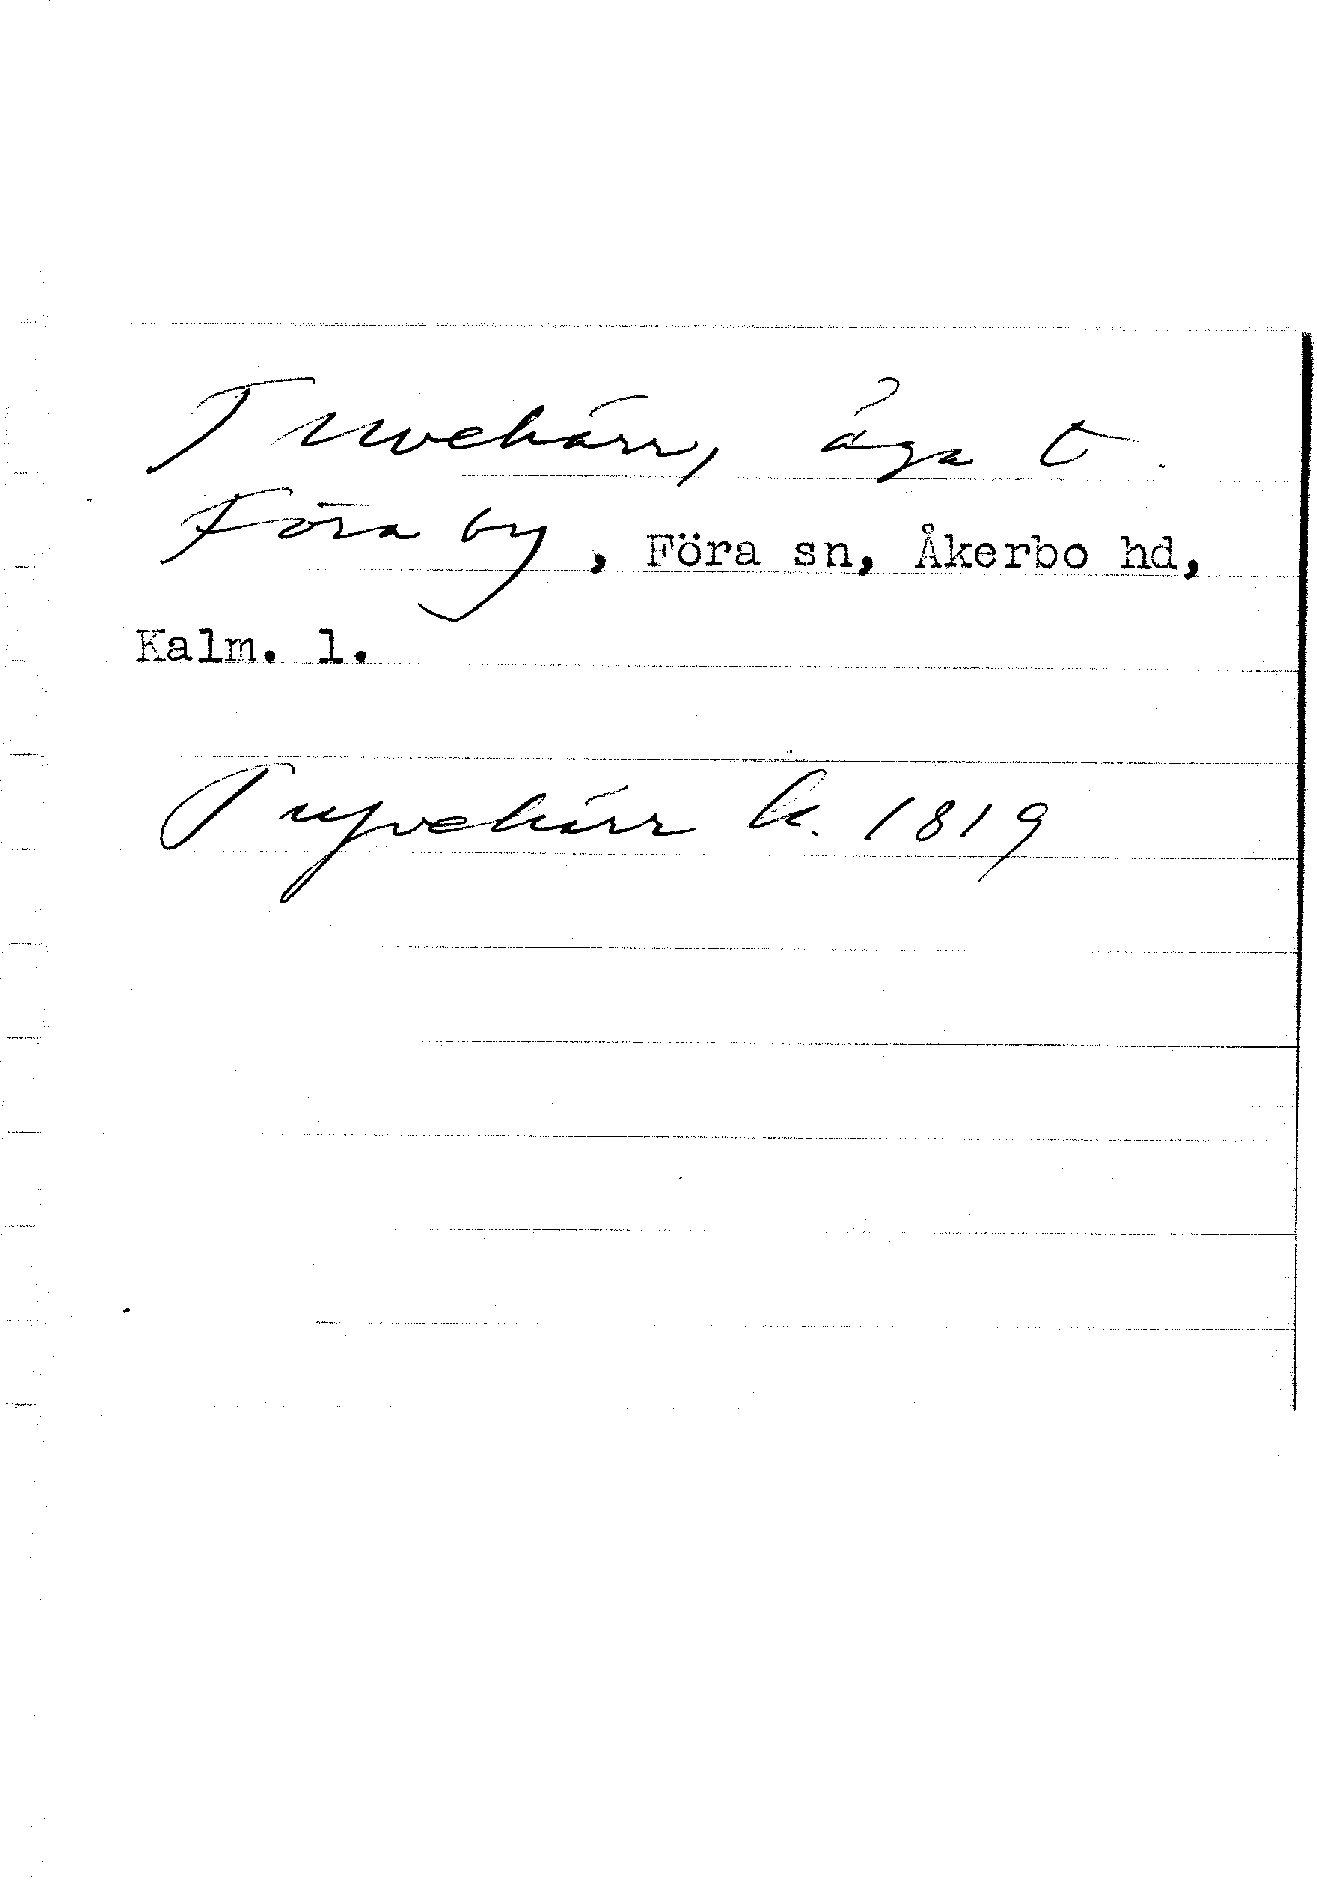 Tuvekärr, äga t.
Föra by, Föra sn, Åkerbo hd,
Kalm. l.
Tufvekärr k. 1819